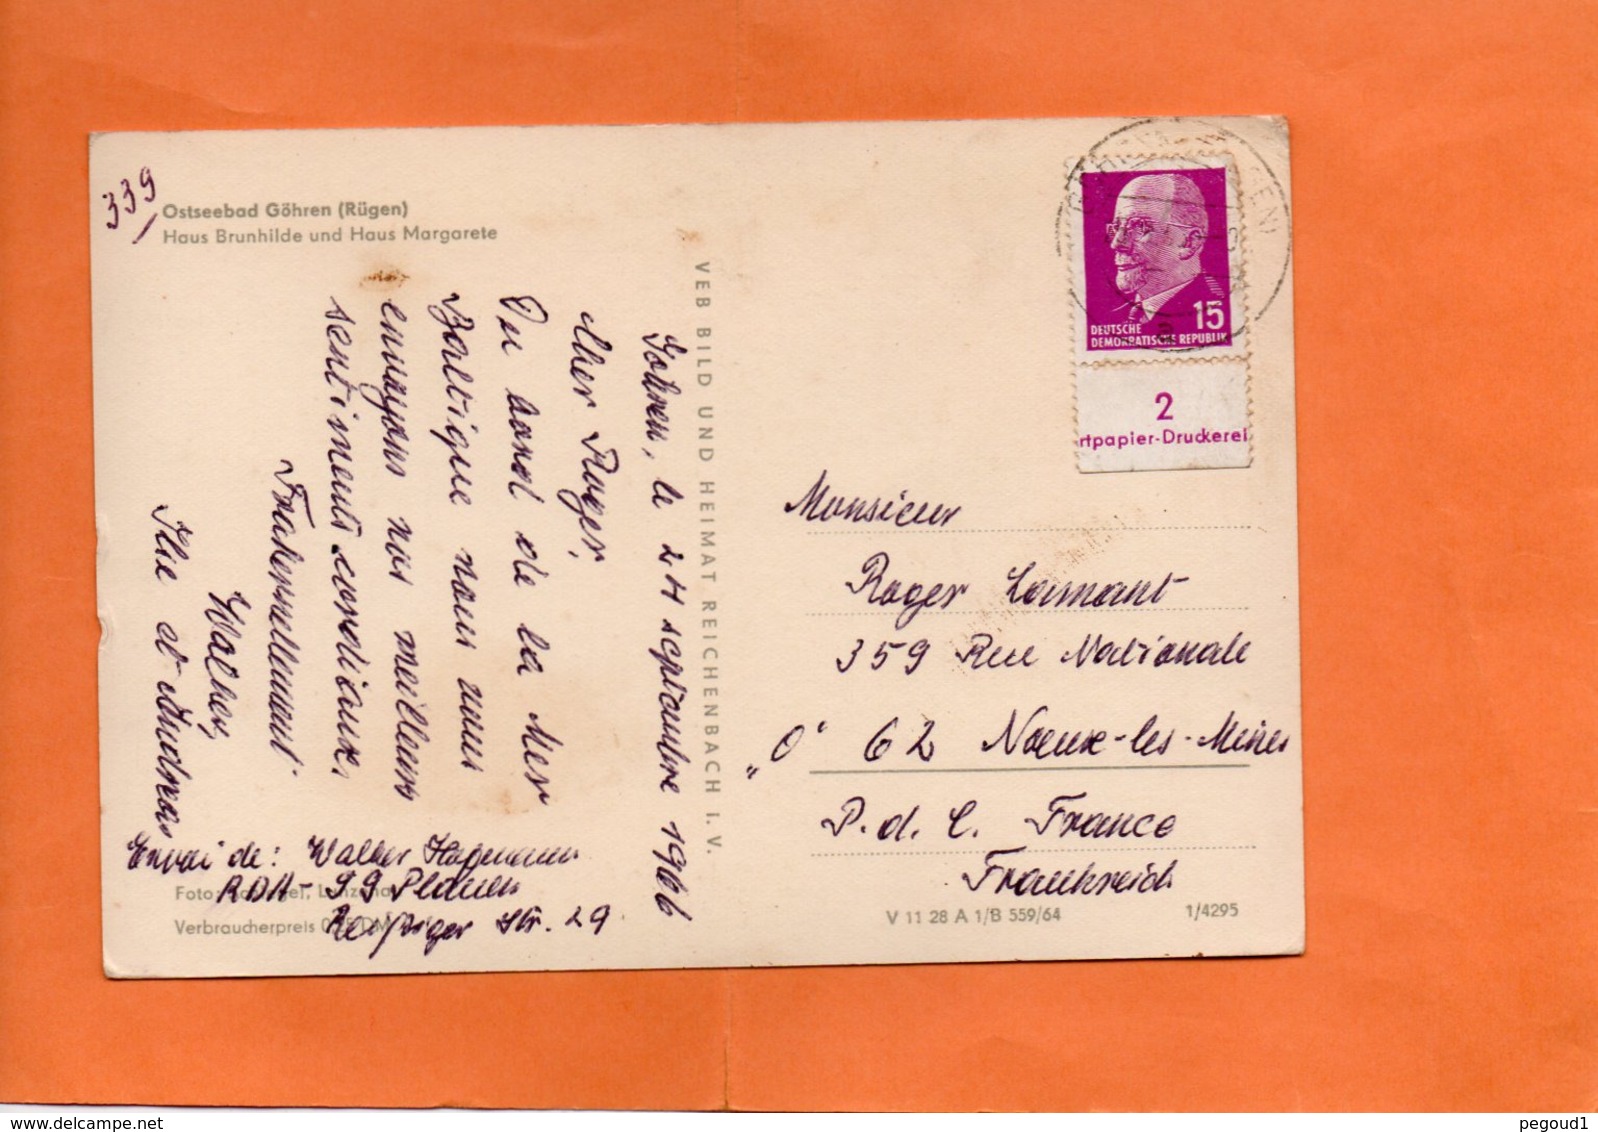 339
Ostseebad Göhren (Rügen)
Haus Brunhilde und Haus Margarete
VEB BILD UND HEIMAT REICHENBACH I. V.
Göhren, le 24 septembre 1966
Cher Roger,
Du bord de la Mer
Baltique nous vous
envoyons nos meilleurs
sentiments cordiaux.
Fraternellement
Walter,
Ilse et Andreas
Envoi de: Walter Hagemann
RDA - 99 Plauen
Leipziger Str. 29
Foto:
Verbraucherpreis
15
DEUTSCHE
DEMOKRATISCHE REPUBLIK
2
rtpapier-Druckerei
Monsieur
Roger Lamant
359 Rue Nationale
„O“ 62 Noeux-les-Mines
P. d. C. France
Frankreich
V 11 28 A 1/B 559/64
1/4295
pegoud1